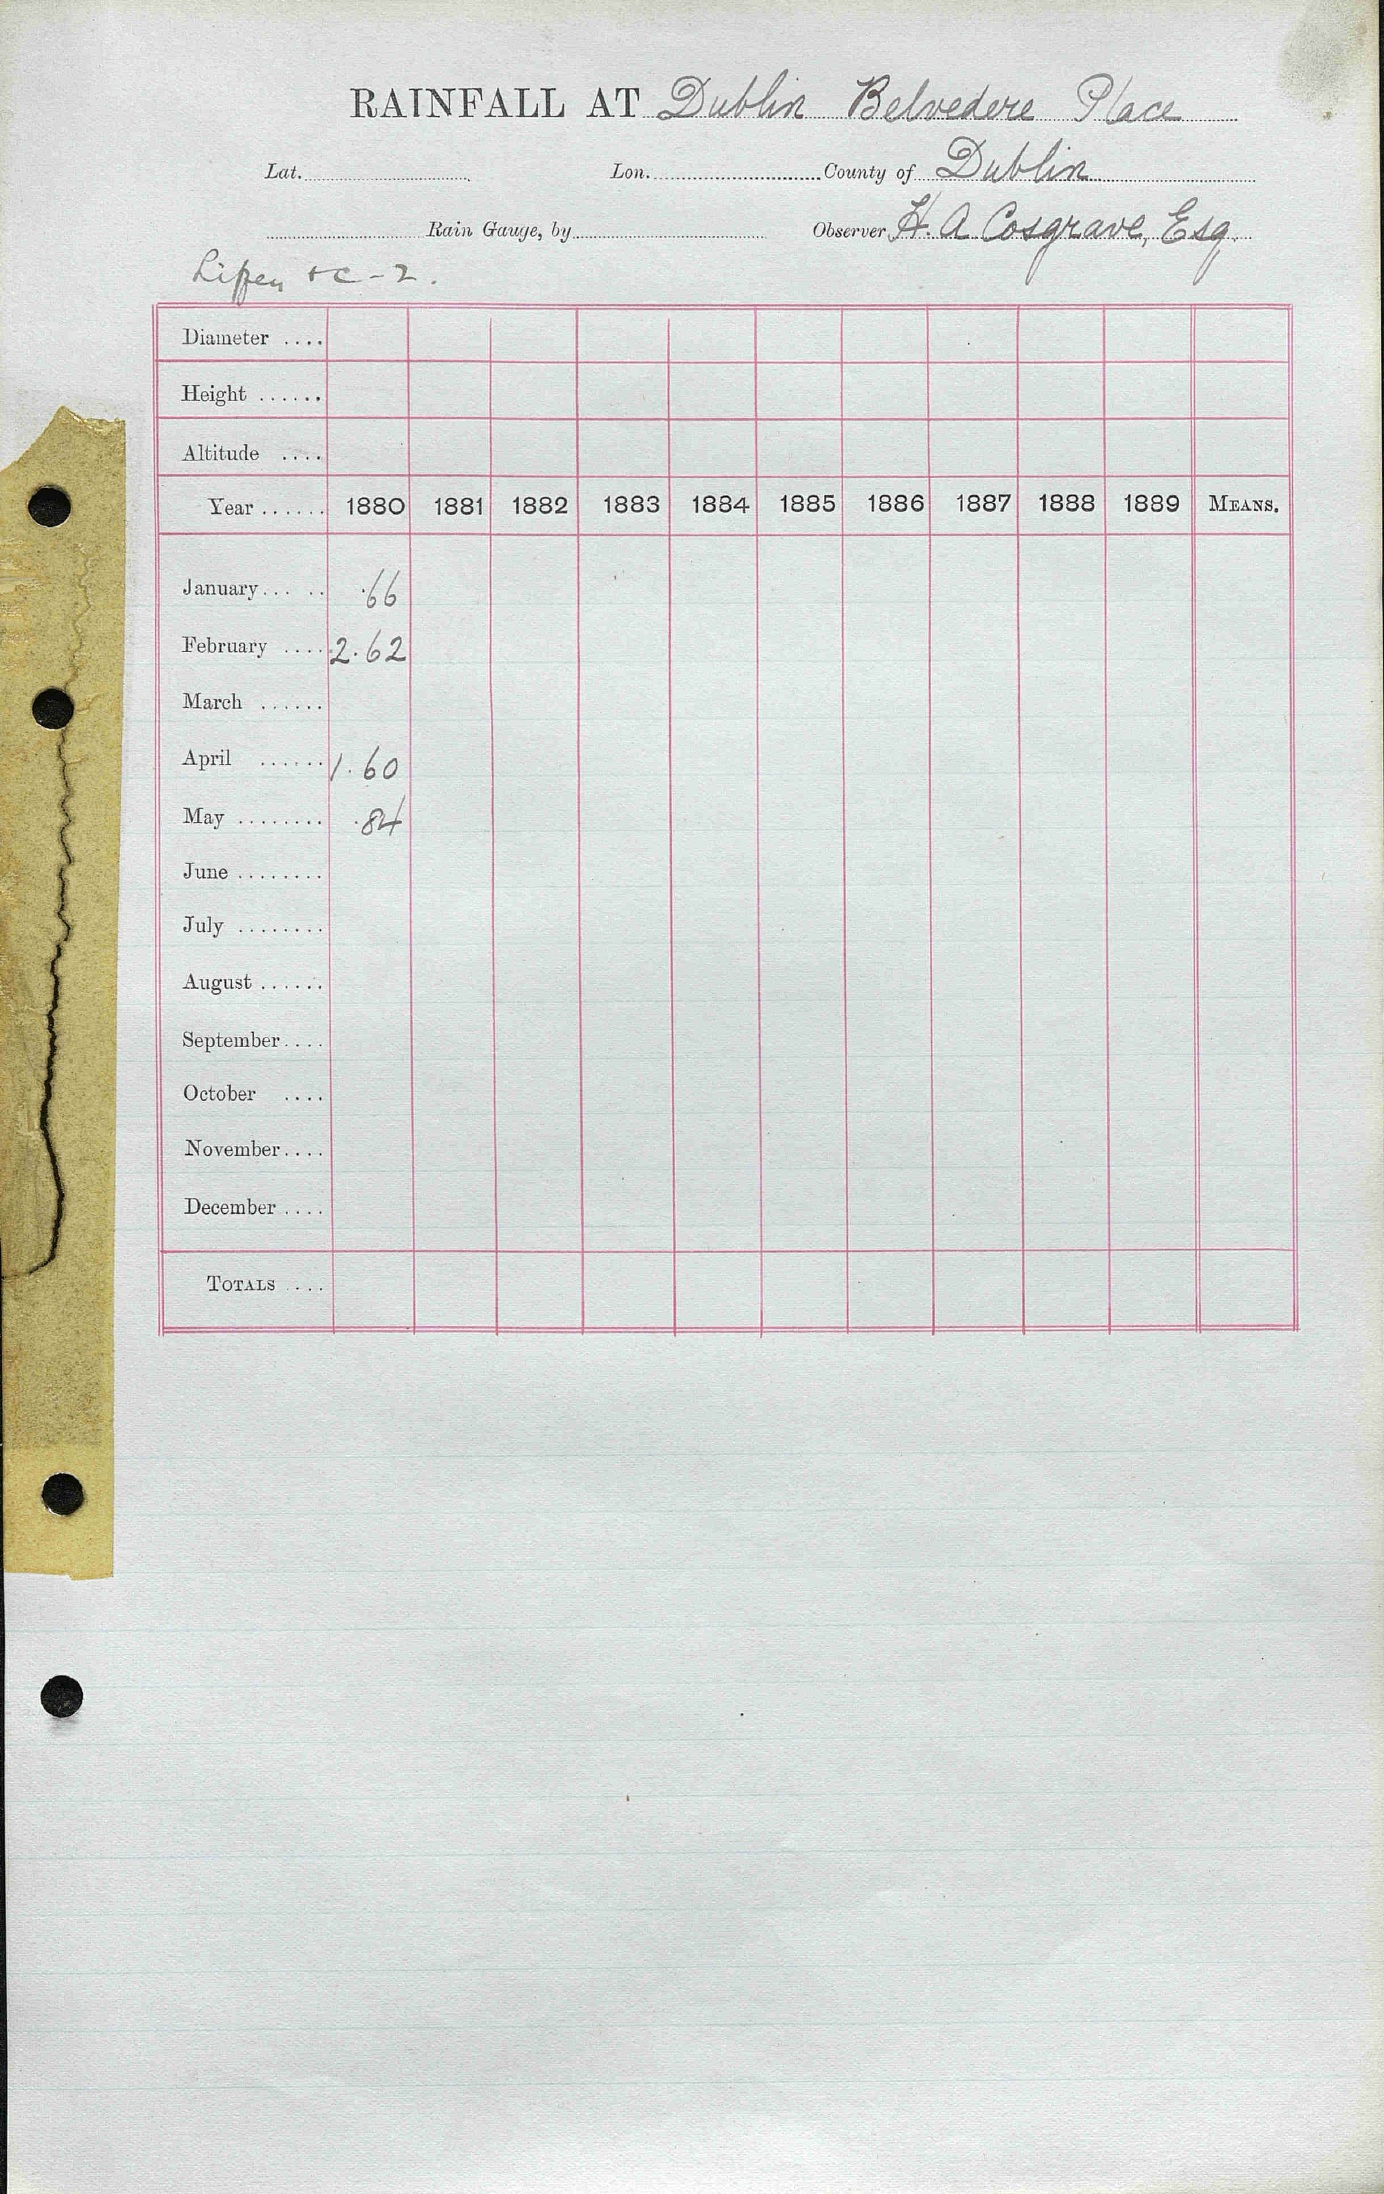 RAINFALL AT Dublin Belvedere Place
Lat. Lon. County of Dublin
Rain Gauge, by Observer H. A Cosgrave, Esq.
&c - 2.
Diameter ....
Height ......
Altitude ....
Year ...... 1880 1881 1882 1883 1884 1885 1886 1887 1888 1889 MEANS.
January ..... .66
February .... 2.62
March ......
April ...... 1.60
May ........ .84
June ........
July ........
August ......
September ....
October ....
November ....
December ....
TOTALS ....